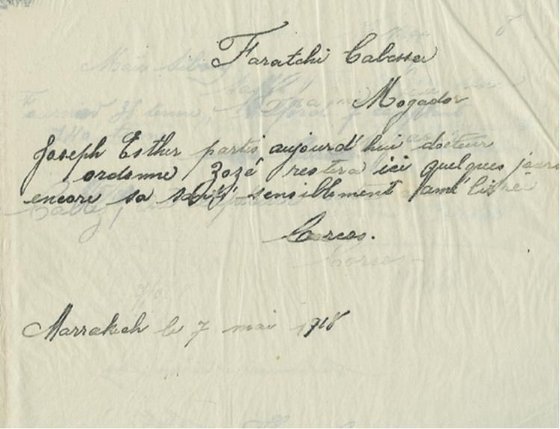 Faratchi Cabessa
Mogador
Joseph Esther partis aujourd'hui docteur
ordonne Zozé restera ici quelques jours
encore sa santé sensiblement améliorée
Corcos.
Marrakech le 7 mai 1918